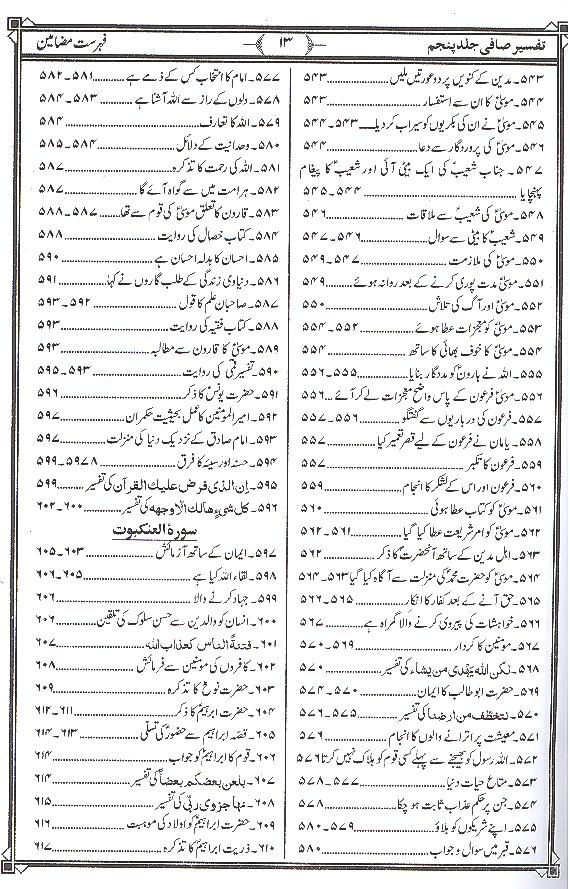 تفسیر صافی جلد پنجم
۱۳
فہرست مضامین
۵۴۳۔ مدین کے کنویں پر دو عورتیں ملیں ۵۴۳
۵۴۴۔ موسیٰؑ کا ان سے استفسار ۵۴۳
۵۴۵۔ موسیٰؑ نے ان کی بکریوں کو سیراب کر دیا ۵۴۳۔۵۴۴
۵۴۶۔ موسیٰؑ کی پروردگار سے دعا ۵۴۴
۵۴۷۔ جناب شعیبؑ کی ایک بیٹی آئی اور شعیبؑ کا پیغام
پہنچایا ۵۴۴۔۵۴۵
۵۴۸۔ موسیٰؑ کی شعیبؑ سے ملاقات ۵۴۶
۵۴۹۔ شعیبؑ کا بیٹی سے سوال ۵۴۶۔۵۴۷
۵۵۰۔ موسیٰؑ کی ملازمت ۵۴۷۔۵۴۹
۵۵۱۔ موسیٰؑ مدت پوری کرنے کے بعد روانہ ہوئے ۵۴۹
۵۵۲۔ موسیٰؑ اور آگ کی تلاش ۵۵۰
۵۵۳۔ موسیٰؑ کو معجزات عطا ہوئے ۵۵۲۔۵۵۴
۵۵۴۔ موسیٰؑ کا خوف بھائی کا ساتھ ۵۵۴
۵۵۵۔ اللہ نے ہارونؑ کو مددگار بنایا ۵۵۵۔۵۵۶
۵۵۶۔ موسیٰؑ فرعون کے پاس واضح معجزات لے کر آئے ۵۵۶
۵۵۷۔ فرعون کی درباریوں سے گفتگو ۵۵۶۔۵۵۷
۵۵۸۔ ہامان نے فرعون کے لیے قصر تعمیر کیا ۵۵۷
۵۵۹۔ فرعون کا تکبر ۵۵۷
۵۶۰۔ فرعون اور اس کے لشکر کا انجام ۵۵۹
۵۶۱۔ موسیٰؑ کو کتاب عطا ہوئی ۵۶۰
۵۶۲۔ موسیٰؑ کو امر شریعت عطا کیا گیا ۵۶۱۔۵۶۲
۵۶۳۔ اہل مدین کے ساتھ آنحضرتؐ کا ذکر ۵۶۲
۵۶۴۔ موسیٰؑ کو حضرت محمدؐ کی منزلت سے آگاہ کیا گیا ۵۶۳۔۵۶۴
۵۶۵۔ حق آنے کے بعد کفار کا انکار ۵۶۵۔۵۶۶
۵۶۶۔ خواہشات کی پیروی کرنے والا گمراہ ہے ۵۶۷
۵۶۷۔ مومنین کا کردار ۵۶۹۔۵۷۰
۵۶۸۔ لكن الله يهدى من يشاء کی تفسیر ۵۷۰
۵۶۹۔ حضرت ابو طالبؑ کا ایمان ۵۷۰۔۵۷۴
۵۷۰۔ نتخطف من ارضنا کی تفسیر ۵۷۵۔۵۷۶
۵۷۱۔ معیشت پر اترانے والوں کا انجام ۵۷۶
۵۷۲۔ اللہ رسول کو بھیجنے سے پہلے کسی قوم کو ہلاک نہیں کرتا ۵۷۶
۵۷۳۔ متاع حیات دنیا ۵۷۷۔۵۷۸
۵۷۴۔ جن پر حکم عذاب ثابت ہو چکا ۵۷۸
۵۷۵۔ اپنے شریکوں کو بلاؤ ۵۷۹۔۵۸۰
۵۷۶۔ قبر میں سوال و جواب ۵۸۰
۵۷۷۔ امام کا انتخاب کس کے ذمے ہے ۵۸۱۔۵۸۲
۵۷۸۔ دلوں کے راز سے اللہ آشنا ہے ۵۸۳۔۵۸۴
۵۷۹۔ اللہ کا تعارف ۵۸۴
۵۸۰۔ وحدانیت کے دلائل ۵۸۴۔۵۸۵
۵۸۱۔ اللہ کی رحمت کا تذکرہ ۵۸۷
۵۸۲۔ ہر امت میں سے گواہ آئے گا ۵۸۷
۵۸۳۔ قارون کا تعلق موسیٰؑ کی قوم سے تھا ۵۸۷۔۵۸۸
۵۸۴۔ کتاب خصال کی روایت ۵۸۸
۵۸۵۔ احسان کا بدلہ احسان ہے ۵۹۰
۵۸۶۔ دنیاوی زندگی کے طلب گاروں نے کہا ۵۹۱
۵۸۷۔ صاحبان علم کا قول ۵۹۲۔۵۹۳
۵۸۸۔ کتاب فقیہ کی روایت ۵۹۳
۵۸۹۔ موسیٰؑ کا قارون سے مطالبہ ۵۹۳
۵۹۰۔ تفسیر قمی کی روایت ۵۹۳۔۵۹۵
۵۹۱۔ حضرت یونسؑ کا ذکر ۵۹۶
۵۹۲۔ امیر المومنینؑ کا عمل بحیثیت حکمران ۵۹۷
۵۹۳۔ امام صادقؑ کے نزدیک دنیا کی منزلت ۵۹۷
۵۹۴۔ حسنہ اور سیئہ کا فرق ۵۹۷۸۔۵۹۹
۵۹۵۔ ان الذى فرض عليك القرآن کی تفسیر ۵۹۹
۵۹۶۔ كل شيء هالك الا وجهه کی تفسیر ۶۰۰۔۶۰۲
سورة العنكبوت
۵۹۷۔ ایمان کے ساتھ آزمائش ۶۰۳۔۶۰۵
۵۹۸۔ لقاء اللہ کیا ہے ۶۰۵۔۶۰۶
۵۹۹۔ جہاد کرنے والا ۶۰۶
۶۰۰۔ انسان کو والدین سے حسن سلوک کی تلقین ۶۰۶
۶۰۱۔ فتنة الناس كعذاب الله ۶۰۷
۶۰۲۔ کافروں کی مومنین سے فرمائش ۶۰۸
۶۰۳۔ حضرت نوحؑ کا تذکرہ ۶۰۹
۶۰۴۔ حضرت ابراہیمؑ کا ذکر ۶۱۱۔۶۱۲
۶۰۵۔ قصہ ابراہیمؑ سے حضورؐ کی تسلی ۶۱۳۔۶۱۴
۶۰۶۔ قوم کا ابراہیمؑ کو جواب ۶۱۴
۶۰۷۔ يلعن بعضكم بعضا کی تفسیر ۶۱۴
۶۰۸۔ مهاجر الى ربى کی تفسیر ۶۱۵
۶۰۹۔ حضرت ابراہیمؑ کو اولاد کی موہبت ۶۱۶
۶۱۰۔ ذریت ابراہیمؑ کا تذکرہ ۶۱۷